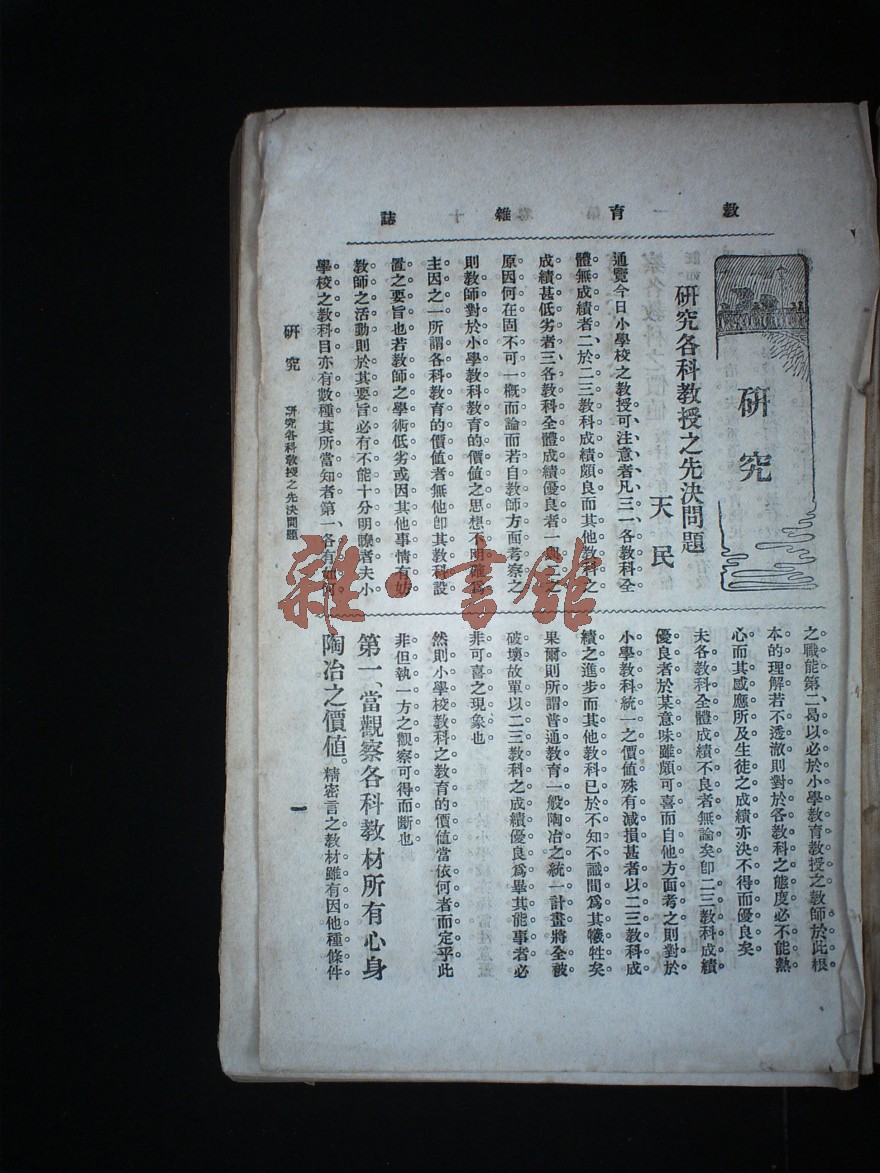 教育雜誌
研究
研究各科教授之先決問題
天民
通覽今日小學校之教授可注意者凡三一、各教科全
體無成績者二、於二三教科成績頗良而其他教科之
成績甚低劣者三、各教科全體成績優良者一與二之
原因何在固不可一概而論而若自教師方面考察之
則教師對於小學教科教育的價值之思想不明確爲
主因之一所謂各科教育的價值者無他卽其教科設
置之要旨也若教師之學術低劣或因其他事情有妨
教師之活動則於其要旨必有不能十分明瞭者夫小
學校之教科目亦有數種其所當知者第一、各有如何
之職能第二、曷以必於小學教育教授之教師於此根
本的理解若不透澈則對於各教科之態度必不能熱
心而其感應所及生徒之成績亦決不得而優良矣
夫各教科全體成績不良者無論矣卽二三教科成績
優良者於某意味雖頗可喜而自他方面考之則對於
小學教科統一之價値殊有減損甚者以二三教科成
績之進步而其他教科已於不知不識間爲其犧牲矣
果爾則所謂普通教育一般陶冶之統一計畫將全被
破壞故單以二三教科之成績優良爲畢其能事者必
非可喜之現象也
然則小學校教科之教育的價値當依何者而定乎此
非但執一方之觀察可得而斷也
第一、當觀察各科教材所有心身
陶冶之價値。精密言之教材雖有因他種條件
研究 研究各科教授之先決問題
一
雜·書館